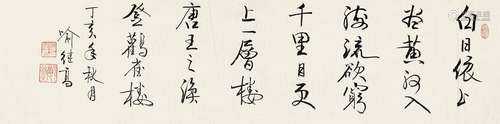 白日依山
尽黄河入
海流欲穷
千里目更
上一层楼
唐王之涣
登鹳雀楼
丁亥年秋月
喻继高